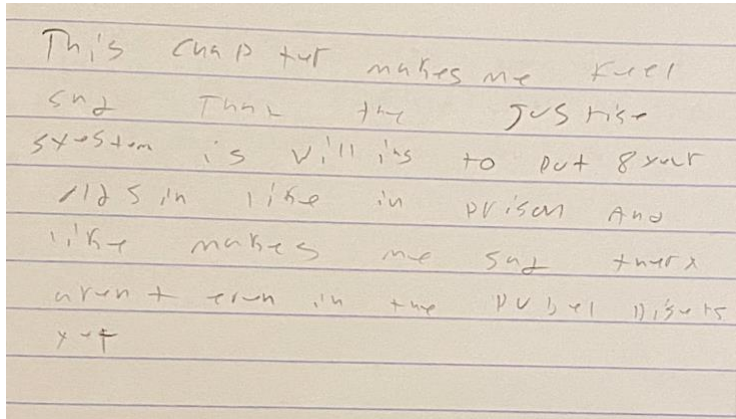 This chap tur makes me feel
sad That the jus tise
syestem is villing to put 8 year
olds in like in prison And
like makes me sad they
arent even in the
yet